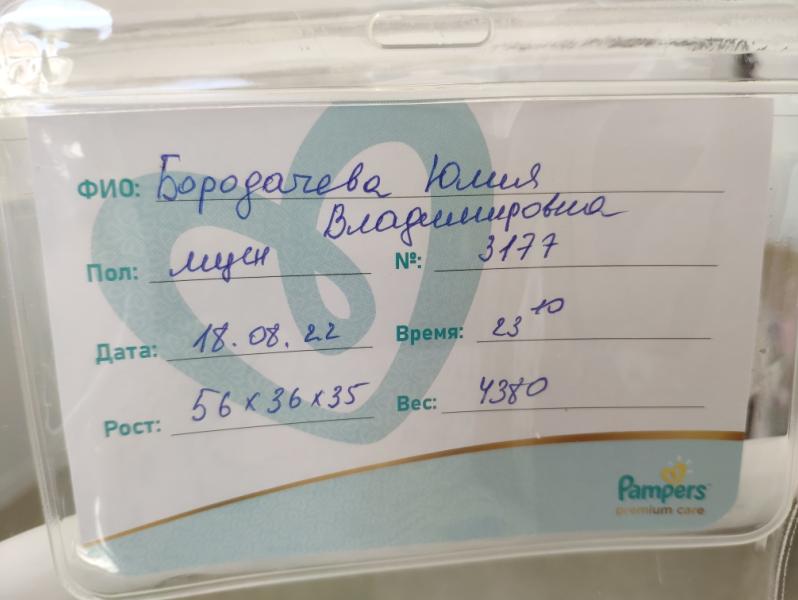 ФИО: Бородачева Юлия
Владимировна
Пол: муж №: 3177
Дата: 18.08.22 Время: 23 10
Рост: 56 x 36 x 35 Вес: 4380
Pampers
premium care